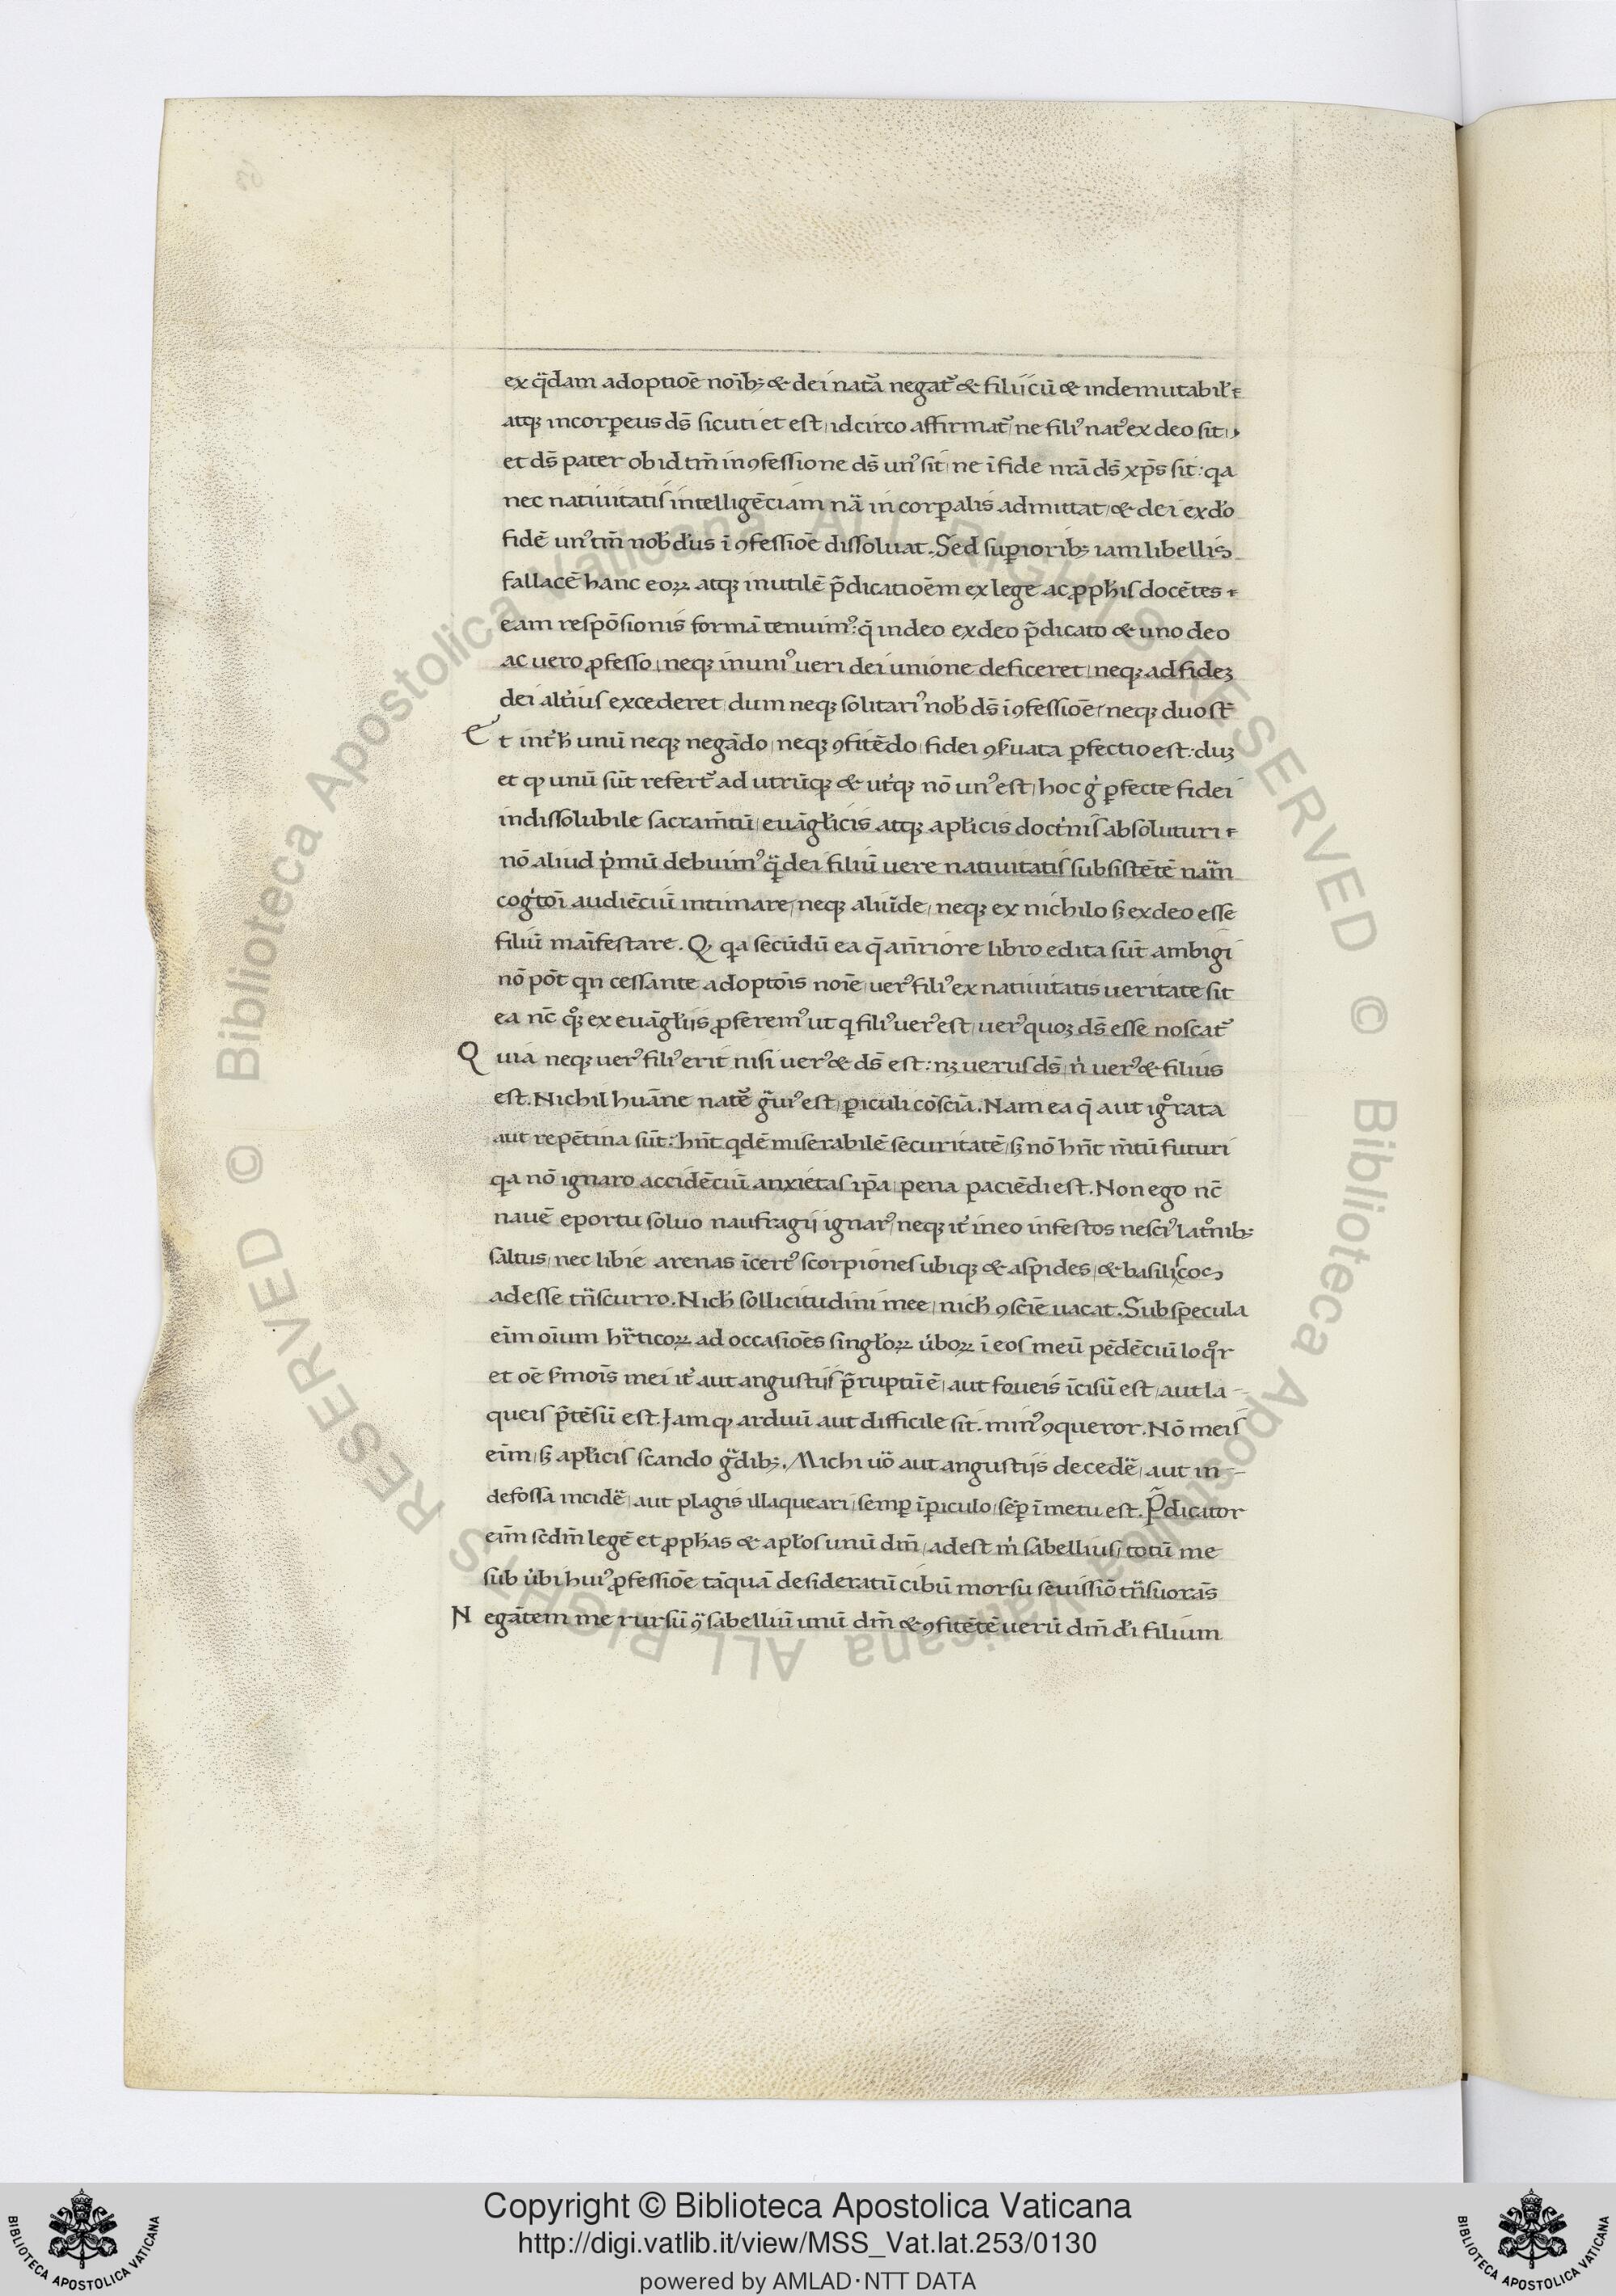 ex q̈dam adoptiōe noīb; & dei natᷓa negat᷒ & filij cū & indemutabil̛ ⁊
atq; incorꝑeus ds̄ sicuti et est, idcirco affirmat᷒, ne filiꝰ natꝰ ex deo sit,
et ds̄ pater ob id tm̄ in ꝯfessione ds̄ unꝰ sit, ne ī fide nrā ds̄ xp̄s sit: qa
nec natiuitatis intelligēciam nä incorꝑalis admittat, & dei ex do̍
fidē unꝰ tm̄ nob̛ d̍us ī ꝯfessiōe dissoluat. Sed suꝑiorib; iam libellis
fallacē hanc eoꝝ atq; inutilē p̄dicatioēm ex lege ac ꝓph̛is docētes ⁊
eam respōsionis formā tenuimꝰ: q̄ in deo ex deo p̄dicato & uno deo
ac uero ꝓfesso, neq; in uniꝰ ueri dei unione deficeret, neq; ad fideꝫ
dei alti̍us excederet, dum neq; solitariꝰ nob̛ ds̄ ī ꝯfessiōe, neq; duo st̄
Et int̛ h̛ unū neq; negādo, neq; ꝯfitēdo, fidei ꝯẜuata ꝑfectio est: duꝫ
et ꝙ unū sūt refert᷒ ad utrūq; & ut̍q; nō unꝰ est, hoc g̍ ꝑfecte fidei
indissolubile sacram̄tū, euāgl̛icis atq; apl̛icis doct̍nis absoluturi ⁊
nō aliud p̍mū debuimꝰ q̈ dei filiū uere natiuitatis subsistētē nän̄
cog̍toī audiēciū intimare, neq; aliūde, neq; ex nichilo ẜ ex deo esse
filiū maīfestare. Q, qa secūdū ea q̄ an̄riore libro edita sūt ambigi
nō pōt qn cessante adoptōis noīe, uerꝰ filiꝰ ex natiuitatis ueritate sit
ea nc̄ qꝫ ex euāgl̛ijs ꝓferemꝰ ut ꝙ filiꝰ uerꝰ est, uerꝰ quoꝫ ds̄ esse noscat᷒
Quia neq; uerꝰ filiꝰ erit nisi uerꝰ & ds̄ est: nꝫ uerus ds̄, n̍ uerꝰ & filius
est. Nichil huāne natē g̈uiꝰ est, ꝑiculi cōsciā. Nam ea q̄ aut ig͛rata
aut repētina sūt: hn̄t qdē miserabilē securitatē, ẜ nō hn̄t m̄tū futuri
qa nō ignaro accidēciū anxietas ip̄a, pena paciēdi est. Non ego nc̄
nauē e portu soluo naufragij ignarꝰ, neq; it̍ ineo infestos nesciꝰ lat͛nib;
saltus, nec libie arenas īcertꝰ scorpiones ubiq; & aspides, & basilicoc
adesse tn̈scurro. Nich̛ sollicitudini mee, nich̛ ꝯscīe uacat. Sub specula
eīm oīum hr̈ticoꝝ ad occasiōes singl̛oꝝ u̍boꝝ ī eos meū pēdēciū loq͛r
et oē ẜmoīs mei it̍ aut angustijs p̄ruptū ē, aut foueis īcisū est, aut la-
queis p̄tēsū est. Jam ꝙ arduū aut difficile sit. minꝰ ꝯqueror. Nō meis
eīm, ẜ apl̛icis scando g̈dib;. Michi uo̎ aut angustijs decedē, aut in-
defossa incidē, aut plagis illaqueari, semꝑ ī ꝑiculo, seꝑ ī metu est. P̄dicator
eīm scdm̄ legē et ꝓph̛as & apl̛os unū dm̄, adest m̍ sabellius, totū me
sub u̍bi huiꝰ ꝓfessiōe tāquā desideratū cibū morsu seuissiō tn̈suorās
Negātem me rursū ꝯ̈ sabelliū unū dm̄ & ꝯfitētē uerū dm̄ d̍i filium
Copyright © Biblioteca Apostolica Vaticana
http://digi.vatlib.it/view/MSS_Vat.lat.253/0130
powered by AMLAD·NTT DATA
BIBLIOTECA APOSTOLICA VATICANA
BIBLIOTECA APOSTOLICA VATICANA
© Biblioteca Apostolica Vaticana ALL RIGHTS RESERVED
© Biblioteca Apostolica Vaticana ALL RIGHTS RESERVED